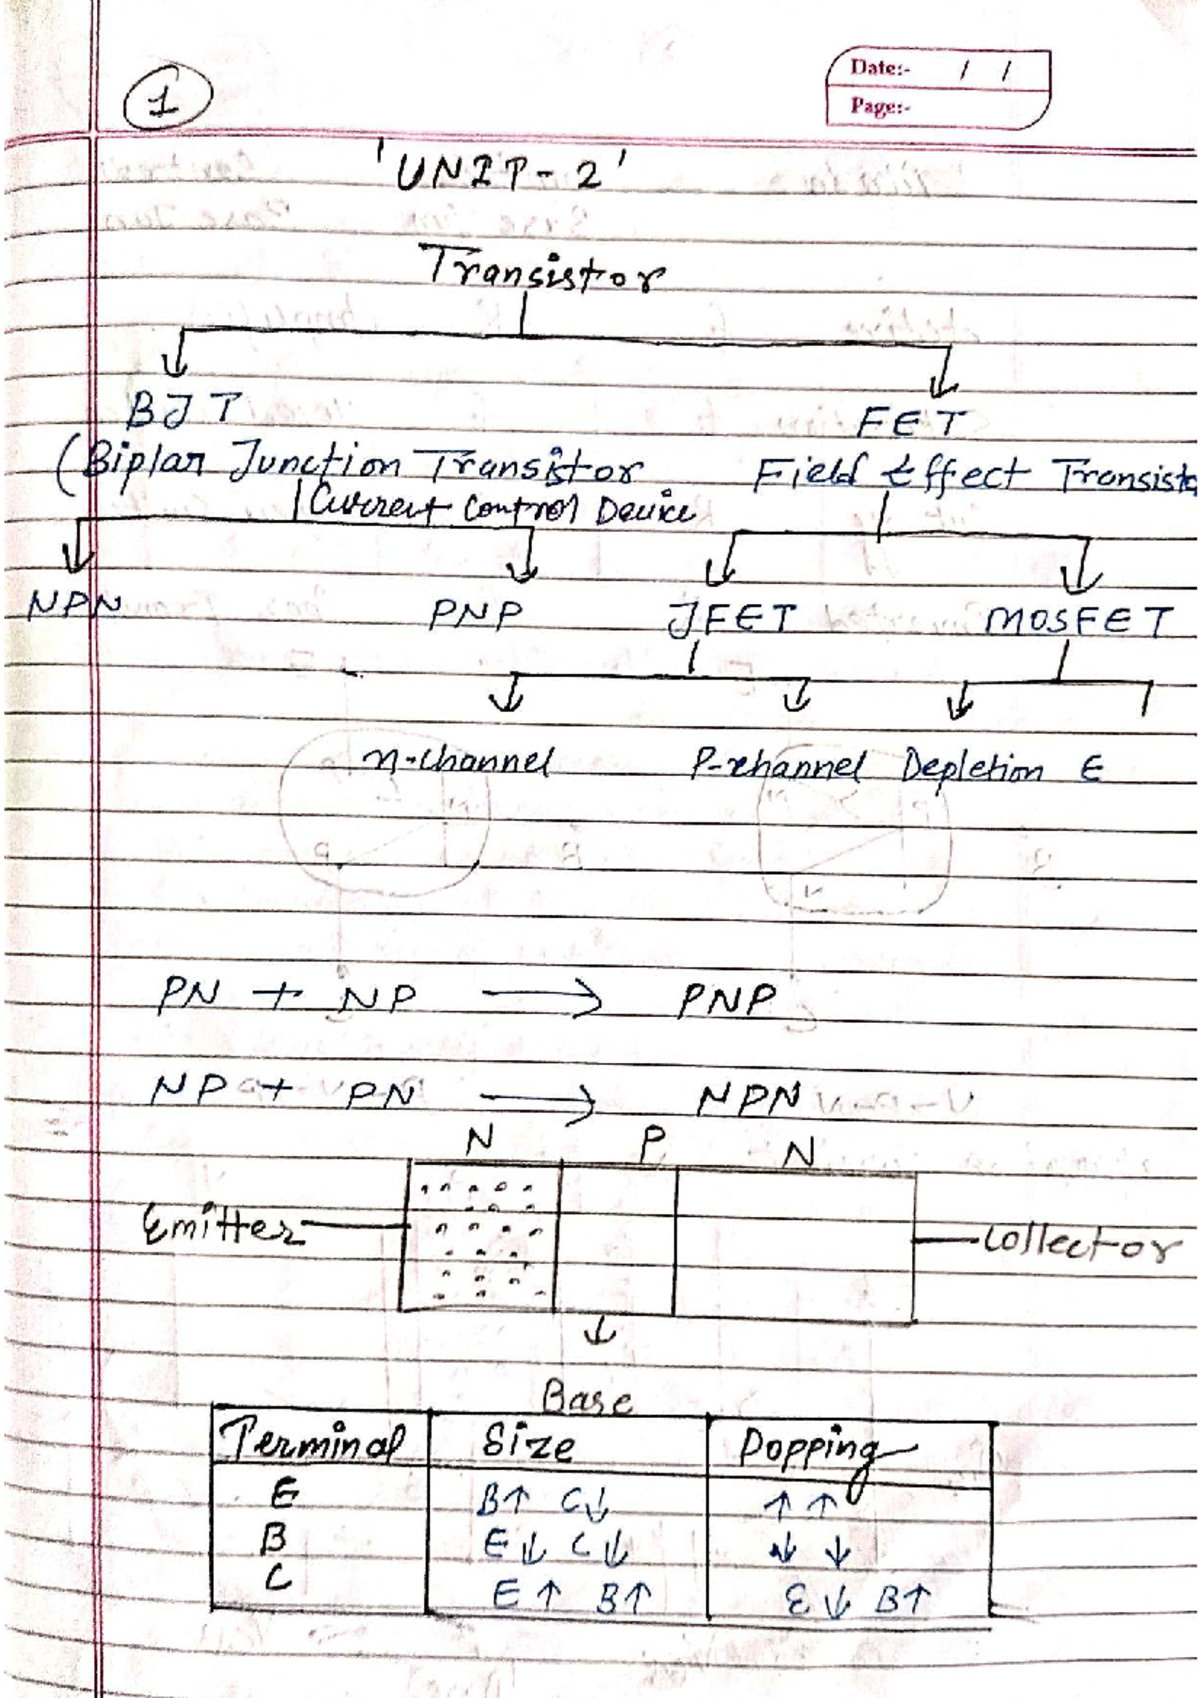 Date:- / /
Page:-
1
'UNIT-2'
Transistor
BJT FET
(Biplar Junction Transistor Field Effect Transisto
Current Control Device
NPN PNP JFET MOSFET
n-channel P-channel Depletion E
PN + NP → PNP
NP + PN → NPN
N P N
Emitter Collector
↓
Base
Terminal Size Dopping
E B↑ C↓ ↑ ↑
B E↓ C↓ ↓ ↓
C E↑ B↑ E↓ B↑